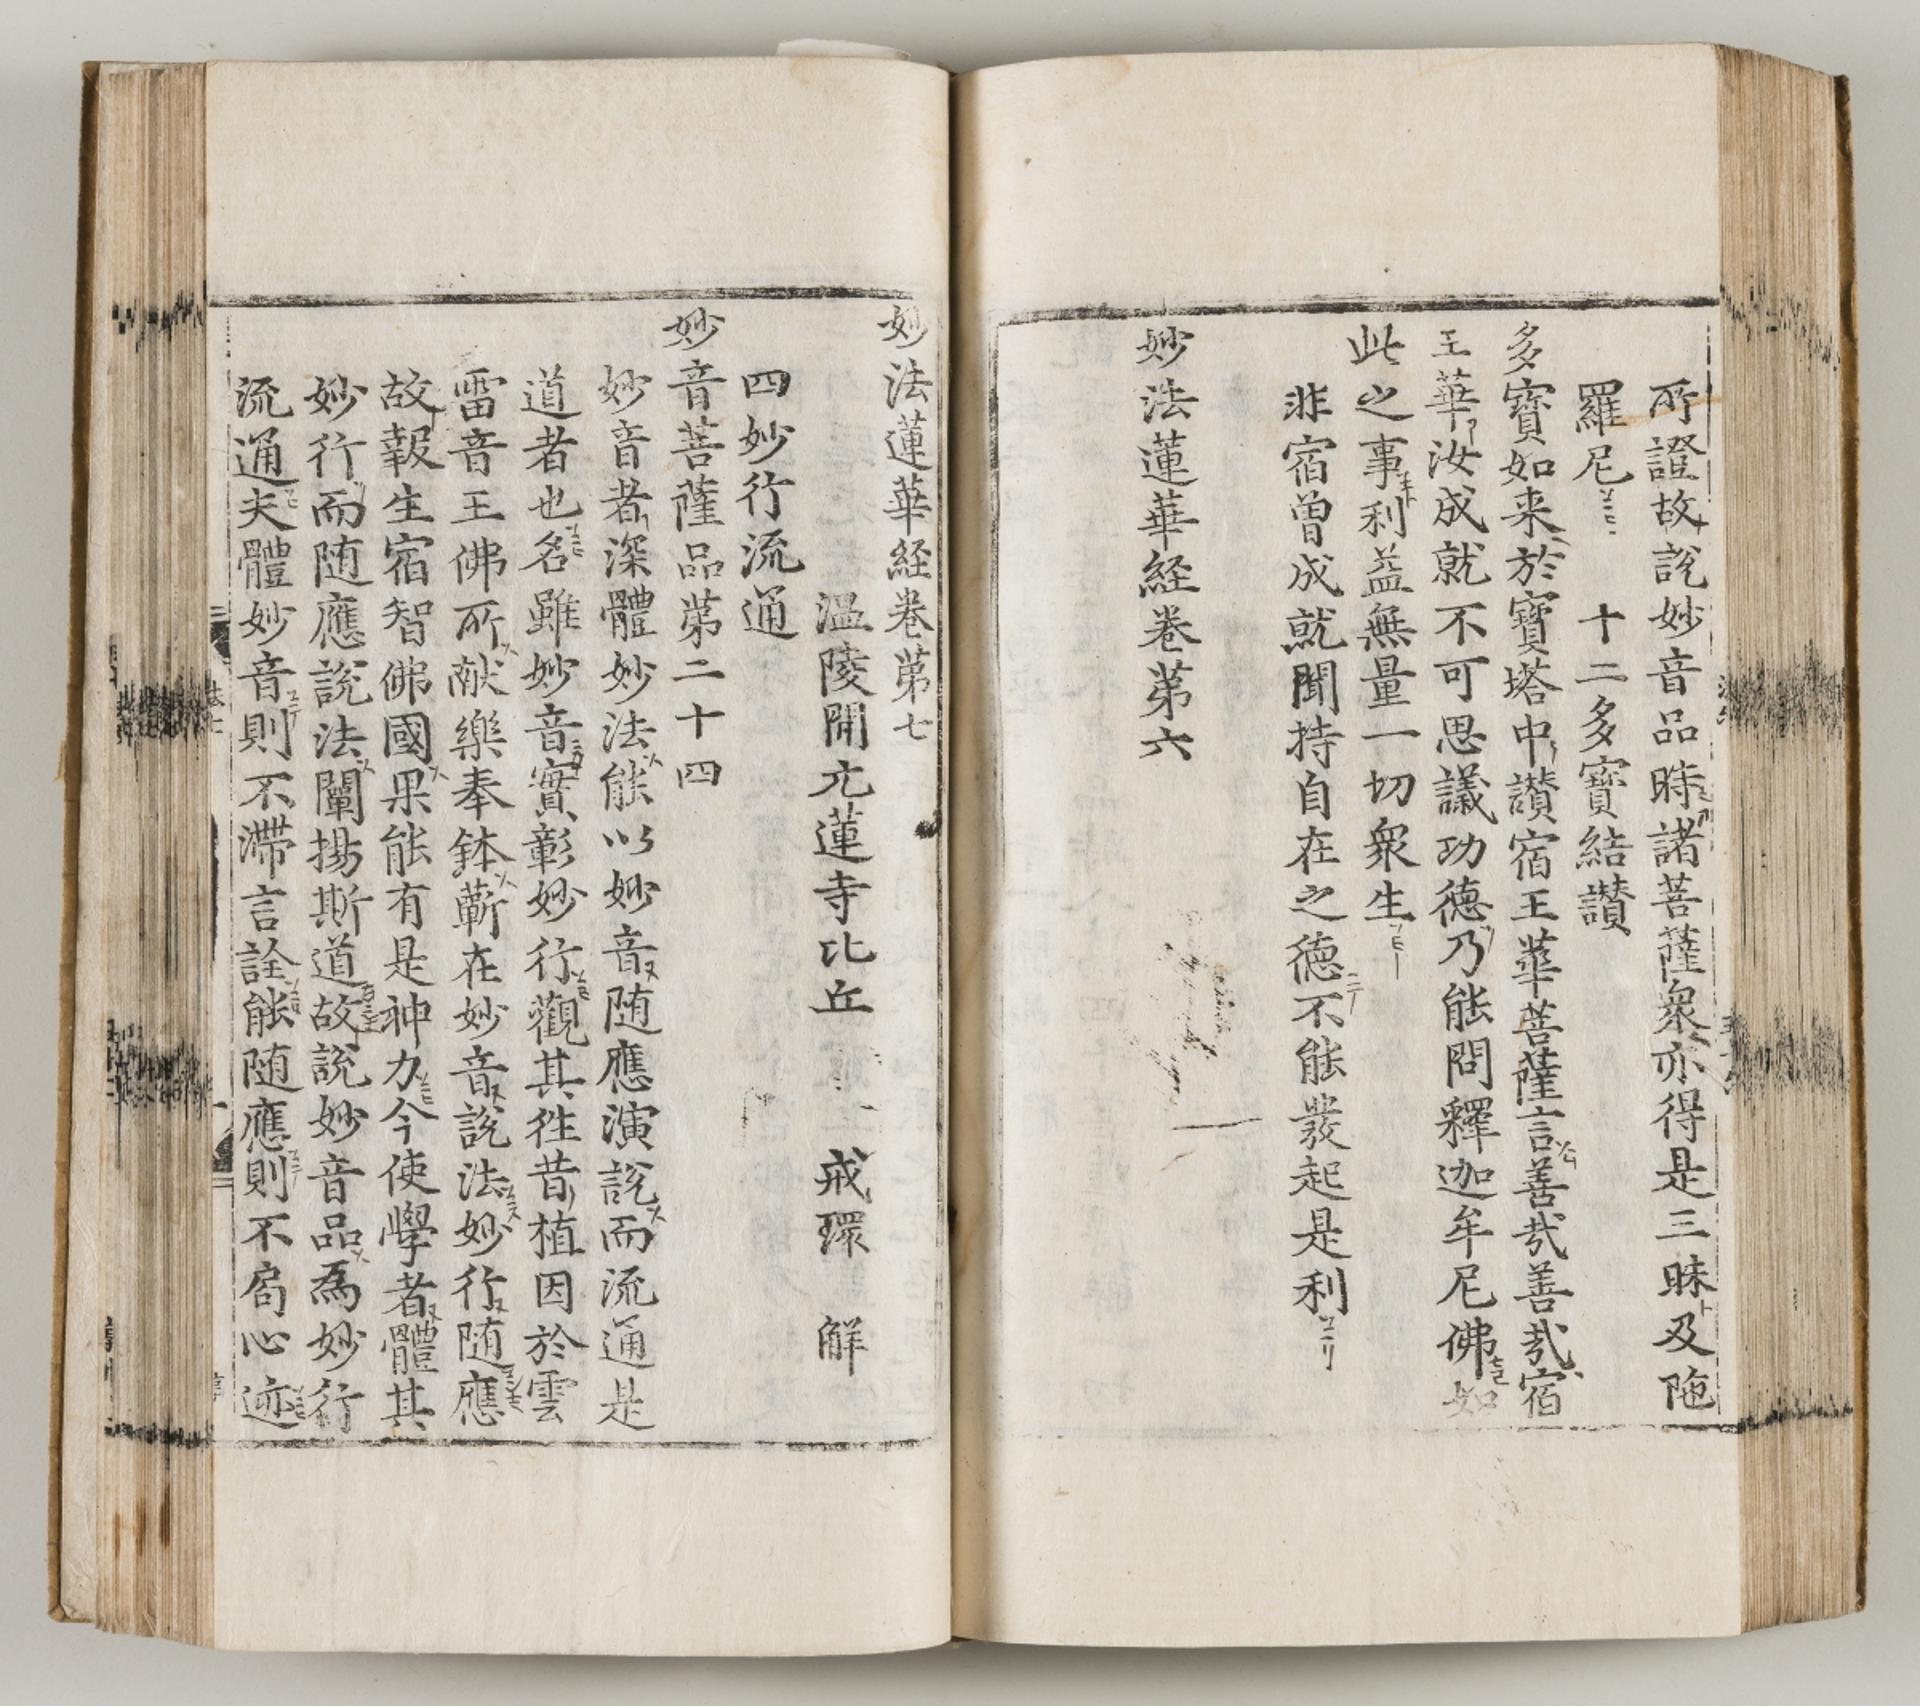 所證故說妙音品時諸菩薩衆亦得是三昧及陁
羅尼 十二多寶結讃
多寶如来於寶塔中讃宿王華菩薩言善㢤善㢤宿
王華汝成就不可思議功德乃能問釋迦牟尼佛如
此之事利益無量一切衆生
非宿曾成就聞持自在之德不能發起是利
妙法蓮華経巻第六
妙法蓮華経巻第七
溫陵開元蓮寺比丘 戒環 解
四妙行流通
妙音菩薩品第二十四
妙音者深體妙法能以妙音随應演說而流通是
道者也名雖妙音實彰妙行觀其徃昔植因於雲
雷音王佛所献樂奉鉢蘄在妙音說法妙行随應
故報生宿智佛國果能有是神力今使學者體其
妙行而随應說法闡揚斯道故說妙音品為妙行
流通夫體妙音則不滯言詮能随應則不局心迹